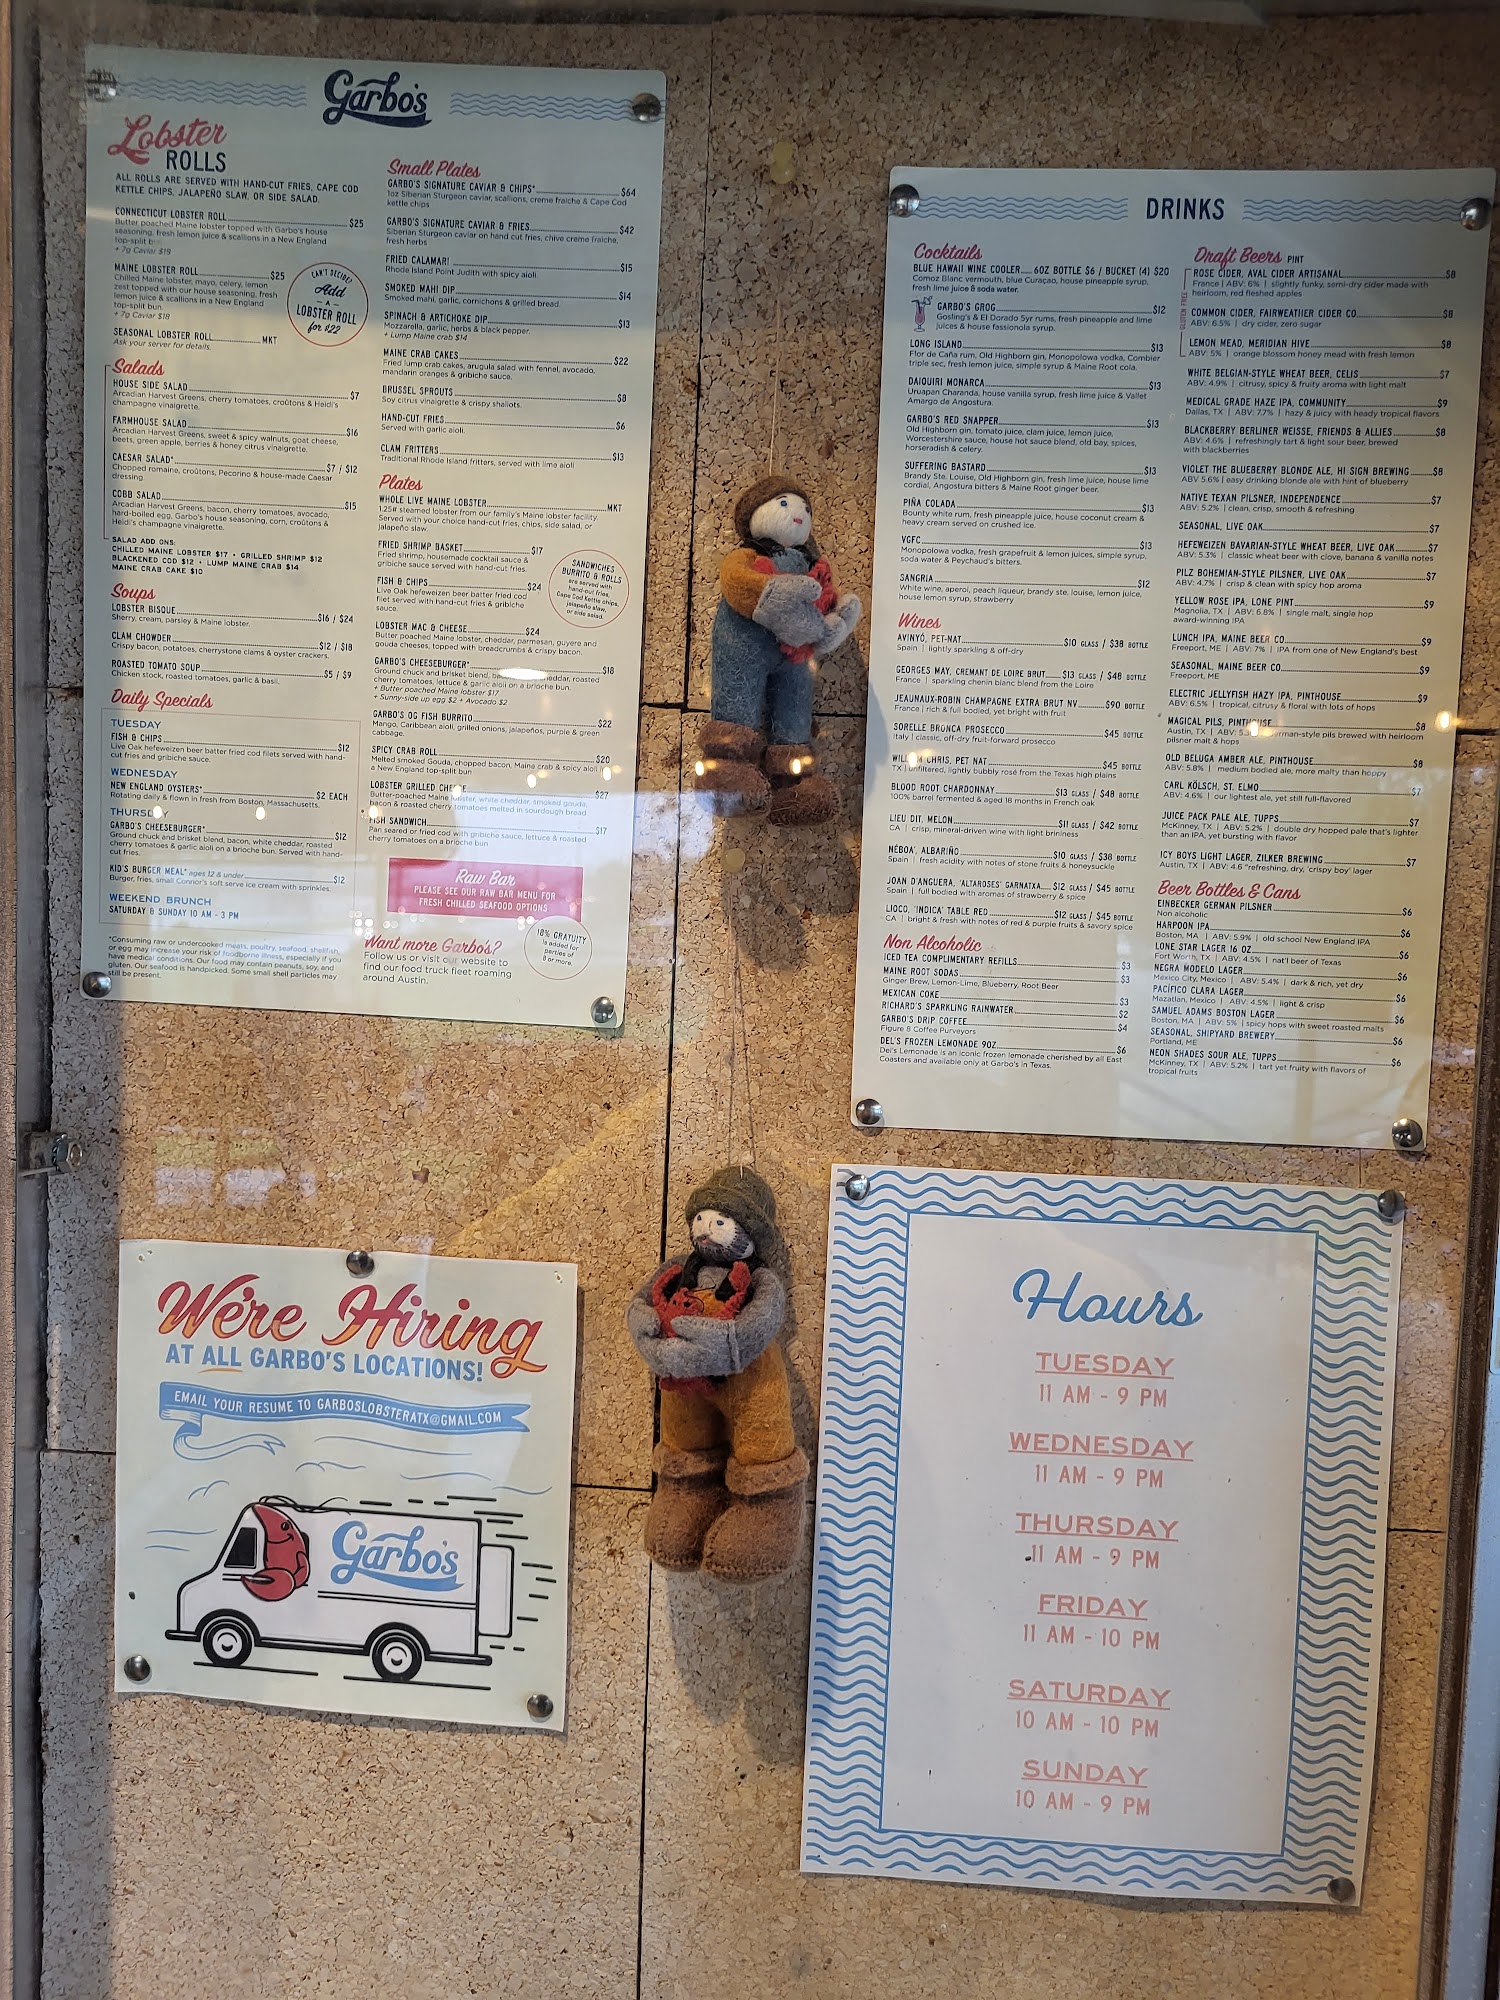 Garbo's
Lobster
ROLLS
ALL ROLLS ARE SERVED WITH HAND-CUT FRIES, CAPE COD
KETTLE CHIPS, JALAPEÑO SLAW, OR SIDE SALAD.
CONNECTICUT LOBSTER ROLL $25
Butter poached Maine lobster topped with Garbo's house
seasoning, fresh lemon juice & scallions in a New England
top-split
+ 7g Caviar $19
MAINE LOBSTER ROLL $25
Chilled Maine lobster, mayo, celery, lemon
zest topped with our house seasoning, fresh
lemon juice & scallions in a New England
top-split bun.
+ 7g Caviar $18
CAN'T DECIDE?
Add
- A -
LOBSTER ROLL
for $22
SEASONAL LOBSTER ROLL MKT
Ask your server for details.
Salads
HOUSE SIDE SALAD $7
Arcadian Harvest Greens, cherry tomatoes, croûtons & Heidi's
champagne vinaigrette.
FARMHOUSE SALAD $16
Arcadian Harvest Greens, sweet & spicy walnuts, goat cheese,
beets, green apple, berries & honey citrus vinaigrette.
CAESAR SALAD* $7 / $12
Chopped romaine, croûtons, Pecorino & house-made Caesar
dressing
COBB SALAD $15
Arcadian Harvest Greens, bacon, cherry tomatoes, avocado,
hard-boiled egg, Garbo's house seasoning, corn, croûtons &
Heidi's champagne vinaigrette.
SALAD ADD ONS:
CHILLED MAINE LOBSTER $17 • GRILLED SHRIMP $12
BLACKENED COD $12 • LUMP MAINE CRAB $14
MAINE CRAB CAKE $10
Soups
LOBSTER BISQUE $16 / $24
Sherry, cream, parsley & Maine lobster.
CLAM CHOWDER $12 / $18
Crispy bacon, potatoes, cherrystone clams & oyster crackers.
ROASTED TOMATO SOUP $5 / $9
Chicken stock, roasted tomatoes, garlic & basil.
Daily Specials
TUESDAY
FISH & CHIPS $12
Live Oak hefeweizen beer batter fried cod filets served with hand-
cut fries and gribiche sauce.
WEDNESDAY
NEW ENGLAND OYSTERS* $2 EACH
Rotating daily & flown in fresh from Boston, Massachusetts.
THURSDAY
GARBO'S CHEESEBURGER* $12
Ground chuck and brisket blend, bacon, white cheddar, roasted
cherry tomatoes & garlic aioli on a brioche bun. Served with hand-
cut fries.
KID'S BURGER MEAL* ages 12 & under $12
Burger, fries, small Connor's soft serve ice cream with sprinkles.
WEEKEND BRUNCH
SATURDAY & SUNDAY 10 AM - 3 PM
*Consuming raw or undercooked meats, poultry, seafood, shellfish,
or egg may increase your risk of foodborne illness, especially if you
have medical conditions. Our food may contain peanuts, soy, and
gluten. Our seafood is handpicked. Some small shell particles may
still be present.
Small Plates
GARBO'S SIGNATURE CAVIAR & CHIPS* $64
1oz Siberian Sturgeon caviar, scallions, creme fraiche & Cape Cod
kettle chips
GARBO'S SIGNATURE CAVIAR & FRIES $42
Siberian Sturgeon caviar on hand cut fries, chive creme fraiche,
fresh herbs
FRIED CALAMARI $15
Rhode Island Point Judith with spicy aioli.
SMOKED MAHI DIP $14
Smoked mahi, garlic, cornichons & grilled bread.
SPINACH & ARTICHOKE DIP $13
Mozzarella, garlic, herbs & black pepper.
+ Lump Maine crab $14
MAINE CRAB CAKES $22
Fried lump crab cakes, arugula salad with fennel, avocado,
mandarin oranges & gribiche sauce.
BRUSSEL SPROUTS $8
Soy citrus vinaigrette & crispy shallots.
HAND-CUT FRIES $6
Served with garlic aioli.
CLAM FRITTERS $13
Traditional Rhode Island fritters, served with lime aioli
Plates
WHOLE LIVE MAINE LOBSTER MKT
1.25# steamed lobster from our family's Maine lobster facility.
Served with your choice hand-cut fries, chips, side salad, or
jalapeño slaw.
FRIED SHRIMP BASKET $17
Fried shrimp, housemade cocktail sauce &
gribiche sauce served with hand-cut fries.
FISH & CHIPS $24
Live Oak Hefeweizen beer batter fried cod
filet served with hand-cut fries & gribiche
sauce.
SANDWICHES
BURRITO & ROLLS
are served with
hand-cut fries,
Cape Cod Kettle chips,
jalapeño slaw,
or side salad.
LOBSTER MAC & CHEESE $24
Butter poached Maine lobster, cheddar, parmesan, guyere and
gouda cheeses, topped with breadcrumbs & crispy bacon.
GARBO'S CHEESEBURGER* $18
Ground chuck and brisket blend, cheddar, roasted
cherry tomatoes, lettuce & garlic aioli on a brioche bun.
+ Butter poached Maine lobster $17
+ Sunny-side up egg $2 + Avocado $2
GARBO'S OG FISH BURRITO $22
Mango, Caribbean aioli, grilled onions, jalapeños, purple & green
cabbage.
SPICY CRAB ROLL $20
Melted smoked Gouda, chopped bacon, Maine crab & spicy aioli
a New England top-split bun
LOBSTER GRILLED CHEESE $27
Butter-poached Maine lobster, white cheddar, smoked gouda,
bacon & roasted cherry tomatoes melted in sourdough bread
FISH SANDWICH $17
Pan seared or fried cod with gribiche sauce, lettuce & roasted
cherry tomatoes on a brioche bun
Raw Bar
PLEASE SEE OUR RAW BAR MENU FOR
FRESH CHILLED SEAFOOD OPTIONS
Want more Garbo's?
Follow us or visit our website to
find our food truck fleet roaming
around Austin.
18% GRATUITY
is added for
parties of
8 or more.
DRINKS
Cocktails
BLUE HAWAII WINE COOLER 6OZ BOTTLE $6 / BUCKET (4) $20
Comoz Blanc vermouth, blue Curaçao, house pineapple syrup,
fresh lime juice & soda water.
GARBO'S GROG $12
Gosling's & El Dorado 5yr rums, fresh pineapple and lime
juices & house fassionola syrup.
LONG ISLAND $13
Flor de Caña rum, Old Highborn gin, Monopolowa vodka, Combier
triple sec, fresh lemon juice, simple syrup & Maine Root cola.
DAIQUIRI MONARCA $13
Uruapan Charanda, house vanilla syrup, fresh lime juice & Vallet
Amargo de Angostura.
GARBO'S RED SNAPPER $13
Old Highborn gin, tomato juice, clam juice, lemon juice,
Worcestershire sauce, house hot sauce blend, old bay, spices,
horseradish & celery.
SUFFERING BASTARD $13
Brandy Ste. Louise, Old Highborn gin, fresh lime juice, house lime
cordial, Angostura bitters & Maine Root ginger beer.
PIÑA COLADA $13
Bounty white rum, fresh pineapple juice, house coconut cream &
heavy cream served on crushed ice.
VGFC $13
Monopolowa vodka, fresh grapefruit & lemon juices, simple syrup,
soda water & Peychaud's bitters.
SANGRIA $12
White wine, aperol, peach liqueur, brandy ste. louise, lemon juice,
house lemon syrup, strawberry
Wines
AVINYÓ, PET-NAT $10 GLASS / $38 BOTTLE
Spain | lightly sparkling & off-dry
GEORGES MAY, CREMANT DE LOIRE BRUT $13 GLASS / $48 BOTTLE
France | sparkling chenin blanc blend from the Loire
JEAUNAUX-ROBIN CHAMPAGNE EXTRA BRUT NV $90 BOTTLE
France | rich & full bodied, yet bright with fruit
SORELLE BRONCA PROSECCO $45 BOTTLE
Italy | classic, off-dry fruit-forward prosecco
WILLIAM CHRIS, PET NAT $45 BOTTLE
TX | unfiltered, lightly bubbly rosé from the Texas high plains
BLOOD ROOT CHARDONNAY $13 GLASS / $48 BOTTLE
100% barrel fermented & aged 18 months in French oak
LIEU DIT, MELON $11 GLASS / $42 BOTTLE
CA | crisp, mineral-driven wine with light brininess
NÉBOA', ALBARIÑO $10 GLASS / $38 BOTTLE
Spain | fresh acidity with notes of stone fruits & honeysuckle
JOAN D'ANGUERA, 'ALTAROSES' GARNATXA $12 GLASS / $45 BOTTLE
Spain | full bodied with aromas of strawberry & spice
LIOCO, 'INDICA' TABLE RED $12 GLASS / $45 BOTTLE
CA | bright & fresh with notes of red & purple fruits & savory spice
Non Alcoholic
ICED TEA COMPLIMENTARY REFILLS $3
MAINE ROOT SODAS $3
Ginger Brew, Lemon-Lime, Blueberry, Root Beer
MEXICAN COKE $3
RICHARD'S SPARKLING RAINWATER $2
GARBO'S DRIP COFFEE $4
Figure 8 Coffee Purveyors
DEL'S FROZEN LEMONADE 9OZ $6
Del's Lemonade is an iconic frozen lemonade cherished by all East
Coasters and available only at Garbo's in Texas.
Draft Beers PINT
GLUTEN FREE
ROSE CIDER, AVAL CIDER ARTISANAL $8
France | ABV: 6% | slightly funky, semi-dry cider made with
heirloom, red fleshed apples
COMMON CIDER, FAIRWEATHER CIDER CO $8
ABV: 6.5% | dry cider, zero sugar
LEMON MEAD, MERIDIAN HIVE $8
ABV: 5% | orange blossom honey mead with fresh lemon
WHITE BELGIAN-STYLE WHEAT BEER, CELIS $7
ABV: 4.9% | citrusy, spicy & fruity aroma with light malt
MEDICAL GRADE HAZE IPA, COMMUNITY $9
Dallas, TX | ABV: 7.7% | hazy & juicy with heady tropical flavors
BLACKBERRY BERLINER WEISSE, FRIENDS & ALLIES $8
ABV: 4.6% | refreshingly tart & light sour beer, brewed
with blackberries
VIOLET THE BLUEBERRY BLONDE ALE, HI SIGN BREWING $8
ABV 5.6% | easy drinking blonde ale with hint of blueberry
NATIVE TEXAN PILSNER, INDEPENDENCE $7
ABV: 5.2% | clean, crisp, smooth & refreshing
SEASONAL, LIVE OAK $7
HEFEWEIZEN BAVARIAN-STYLE WHEAT BEER, LIVE OAK $7
ABV: 5.3% | classic wheat beer with clove, banana & vanilla notes
PILZ BOHEMIAN-STYLE PILSNER, LIVE OAK $7
ABV: 4.7% | crisp & clean with spicy hop aroma
YELLOW ROSE IPA, LONE PINT $9
Magnolia, TX | ABV: 6.8% | single malt, single hop
award-winning IPA
LUNCH IPA, MAINE BEER CO $9
Freeport, ME | ABV: 7% | IPA from one of New England's best
SEASONAL, MAINE BEER CO $9
Freeport, ME
ELECTRIC JELLYFISH HAZY IPA, PINTHOUSE $9
ABV: 6.5% | tropical, citrusy & floral with lots of hops
MAGICAL PILS, PINTHOUSE $8
Austin, TX | ABV: German-style pils brewed with heirloom
pilsner malt & hops
OLD BELUGA AMBER ALE, PINTHOUSE $8
ABV: 5.8% | medium bodied ale, more malty than hoppy
CARL KÖLSCH, ST. ELMO $7
ABV: 4.6% | our lightest ale, yet still full-flavored
JUICE PACK PALE ALE, TUPPS $7
McKinney, TX | ABV: 5.2% | double dry hopped pale that's lighter
than an IPA, yet bursting with flavor
ICY BOYS LIGHT LAGER, ZILKER BREWING $7
Austin, TX | ABV: 4.6 "refreshing, dry, 'crispy boy' lager
Beer Bottles & Cans
EINBECKER GERMAN PILSNER $6
Non alcoholic
HARPOON IPA $6
Boston, MA | ABV: 5.9% | old school New England IPA
LONE STAR LAGER 16 OZ $6
Fort Worth, TX | ABV: 4.5% | nat'l beer of Texas
NEGRA MODELO LAGER $6
Mexico City, Mexico | ABV: 5.4% | dark & rich, yet dry
PACÍFICO CLARA LAGER $6
Mazatlan, Mexico | ABV: 4.5% | light & crisp
SAMUEL ADAMS BOSTON LAGER $6
Boston, MA | ABV: 5% | spicy hops with sweet roasted malts
SEASONAL, SHIPYARD BREWERY $6
Portland, ME
NEON SHADES SOUR ALE, TUPPS $6
McKinney, TX | ABV: 5.2% | tart yet fruity with flavors of
tropical fruits
We're Hiring
AT ALL GARBO'S LOCATIONS!
EMAIL YOUR RESUME TO GARBOSLOBSTERATX@GMAIL.COM
Garbo's
Hours
TUESDAY
11 AM - 9 PM
WEDNESDAY
11 AM - 9 PM
THURSDAY
11 AM - 9 PM
FRIDAY
11 AM - 10 PM
SATURDAY
10 AM - 10 PM
SUNDAY
10 AM - 9 PM